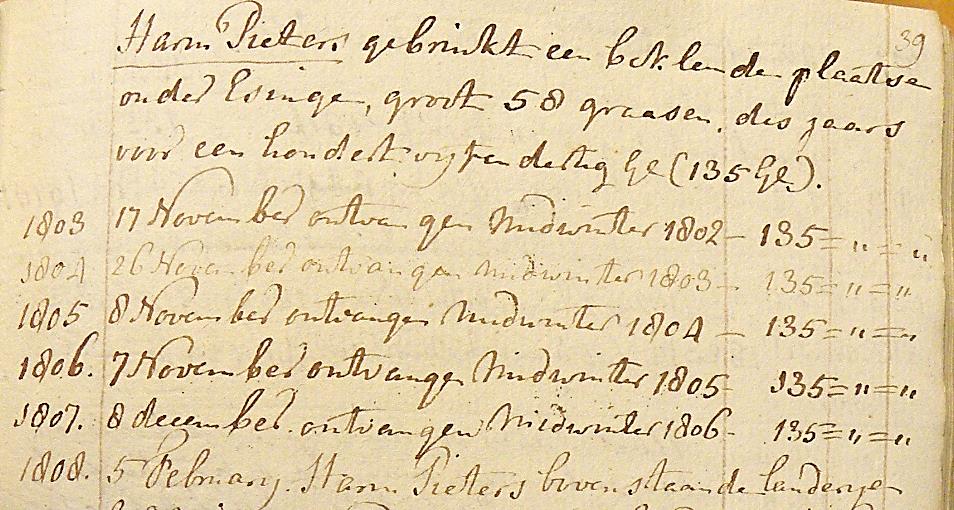 39
Harm Pieters gebruikt een beklemde plaatse
onder Esinge, groot 58 graasen, des jaars
voor een hondert vyf en dertig Gl (135 Gl).
1803 17 November ontvangen Midwinter 1802 – 135 = „ = „
1804 26 November ontvangen midwinter 1803 – 135 = „ = „
1805 8 November ontvangen Midwinter 1804 – 135 = „ = „
1806. 7 November ontvangen Midwinter 1805 – 135 = „ = „
1807. 8 december ontvangen Midwinter 1806 – 135 = „ = „
1808. 5 February. Harm Pieters bovenstaande landeryen